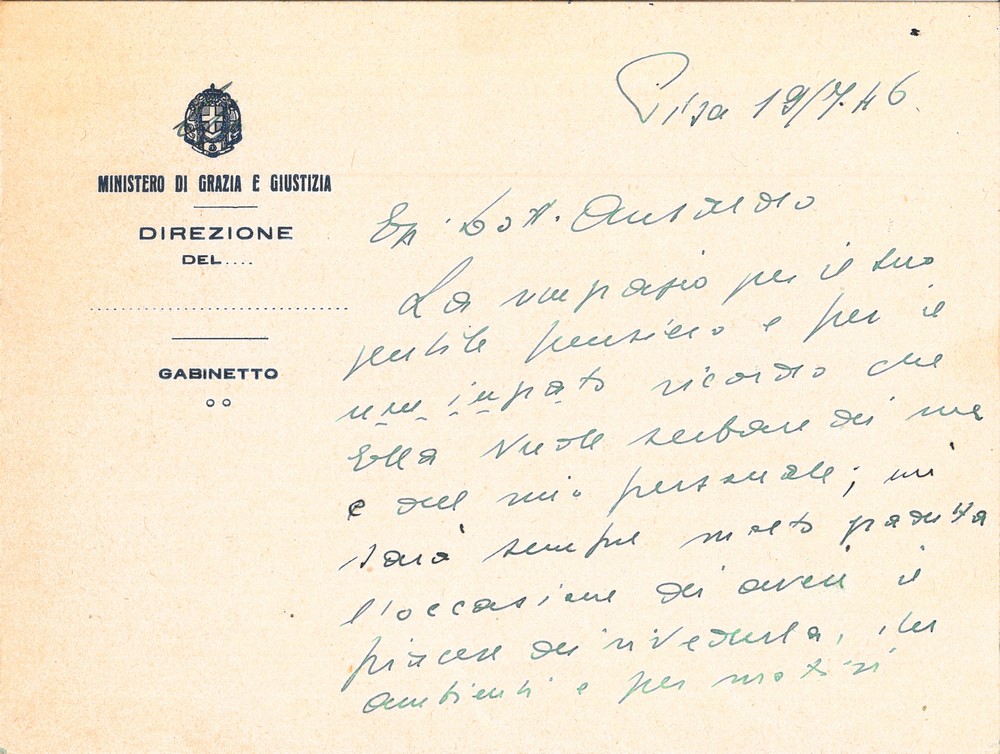 Pisa 19/7.46
MINISTERO DI GRAZIA E GIUSTIZIA
DIREZIONE
DEL....
GABINETTO
Dott. Ansaldo
La ringrazio per il suo
gentile pensiero e per il
non ingrato ricordo che
Ella vuole serbare di me
e del mio personale; mi
sarà sempre molto gradita
l'occasione di avere il
piacere di rivederla, in
ambienti e per motivi